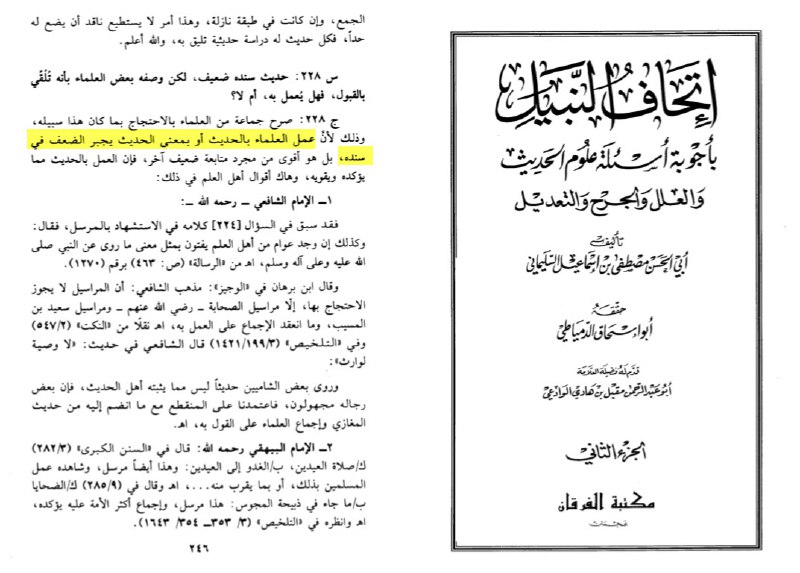 الجمع، وإن كانت في طبقة نازلة، وهذا أمر لا يستطيع ناقد أن يضع له
حداً، فكل حديث له دراسة حديثية تليق به، والله أعلم.
س ٢٢٨: حديث سنده ضعيف، لكن وصفه بعض العلماء بأنه تُلُقِّي
بالقبول، فهل يُعمل به، أم لا؟
ج ٢٢٨: صرح جماعة من العلماء بالاحتجاج بما كان هذا سبيله،
وذلك لأن عمل العلماء بالحديث أو بمعنى الحديث يجبر الضعف في
سنده، بل هو أقوى من مجرد متابعة ضعيف آخر، فإن العمل بالحديث مما
يؤكده ويقويه، وهاك أقوال أهل العلم في ذلك:
١ـ الإمام الشافعي ـ رحمه الله ـ:
فقد سبق في السؤال [٢٢٤] كلامه في الاستشهاد بالمرسل، فقال:
وكذلك إن وجد عوام من أهل العلم يفتون بمثل معنى ما روى عن النبي صلى
الله عليه وعلى آله وسلم، اهـ من «الرسالة» (ص: ٤٦٣) برقم (١٢٧٠).
وقال ابن برهان في «الوجيز»: مذهب الشافعي: أن المراسيل لا يجوز
الاحتجاج بها، إلّا مراسيل الصحابة ـ رضي الله عنهم ـ ومراسيل سعيد بن
المسيب، وما انعقد الإجماع على العمل به، اهـ نقلًا من «النكت» (٥٤٧/٢)
وفي «التلخيص» (١٤٢١/١٩٩/٣) قال الشافعي في حديث: «لا وصية
لوارث»:
وروى بعض الشاميين حديثاً ليس مما يثبته أهل الحديث، فإن بعض
رجاله مجهولون، فاعتمدنا على المنقطع مع ما انضم إليه من حديث
المغازي وإجماع العلماء على القول به، اهـ.
٢ـ الإمام البيهقي رحمه الله: قال في «السنن الكبرى» (٢٨٢/٣)
ك/صلاة العيدين، ب/الغدو إلى العيدين: وهذا أيضاً مرسل، وشاهده عمل
المسلمين بذلك، أو بما يقرب منه...، اهـ وقال في (٢٨٥/٩) ك/الضحايا
ب/ما جاء في ذبيحة المجوس: هذا مرسل، وإجماع أكثر الأمة عليه يؤكده،
اهـ وانظره في «التلخيص» (٣/ ٣٥٣ـ ٣٥٤ /١٦٤٣).
٢٤٦
إتحاف النبيل
بأجوبة أسئلة علوم الحديث
والعلل والجرح والتعديل
تأليف
أبي الحسن مصطفى بن إسماعيل السليماني
حققه
أبو إسحاق الدمياطي
قدم له فضيلة العلامة
أبو عبد الرحمن مقبل بن هادي الوادعي
الجزء الثاني
مكتبة الفرقان
عجمان